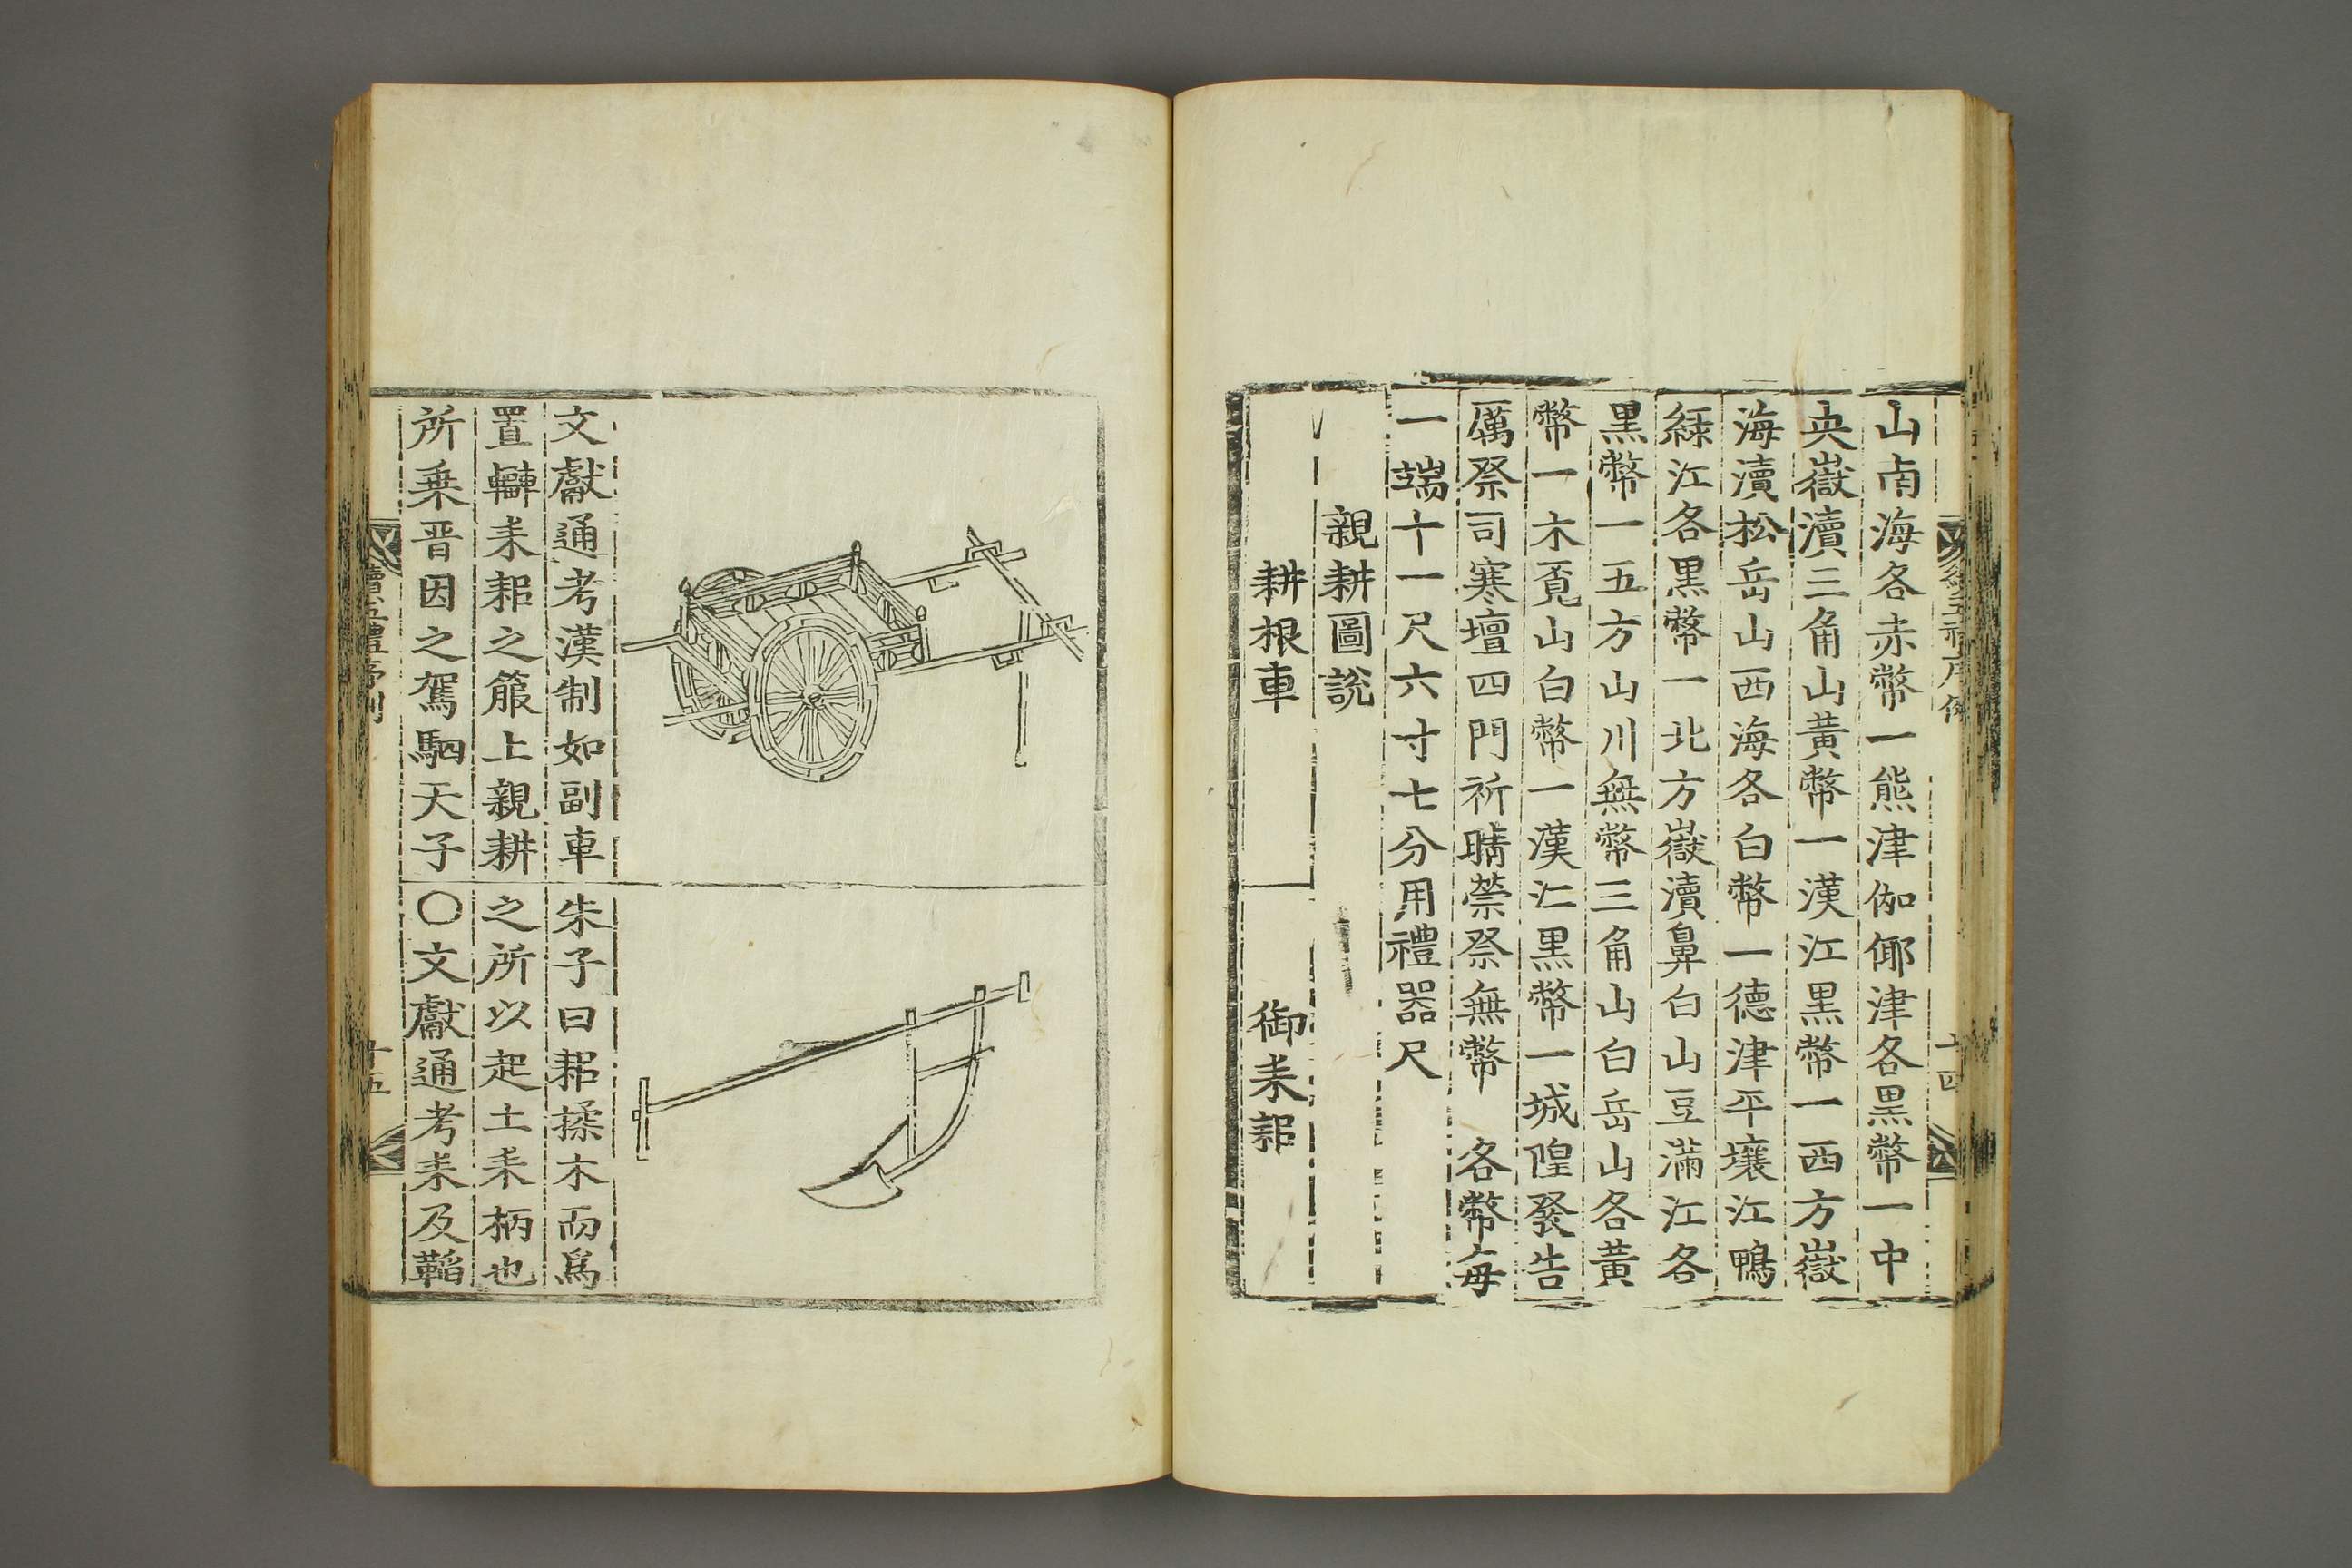 山南海各赤幣一熊津伽倻津各黑幣一中
央嶽瀆三角山黃幣一漢江黑幣一西方嶽
海瀆松岳山西海各白幣一德津平壤江鴨
綠江各黑幣一北方嶽瀆鼻白山豆滿江各
黑幣一五方山川無幣三角山白岳山各黃
幣一木覓山白幣一漢江黑幣一城隍發告
厲祭司寒壇四門祈晴禜祭無幣 各幣每
一端十一尺六寸七分用禮器尺
親耕圖說
耕根車
御耒耜
十四
文獻通考漢制如副車
置𨏥耒耜之箙上親耕
所乗晋因之駕駟天子
朱子曰耜揉木而爲
之所以起土耒柄也
○文獻通考耒及鞱
續五禮序例
十五